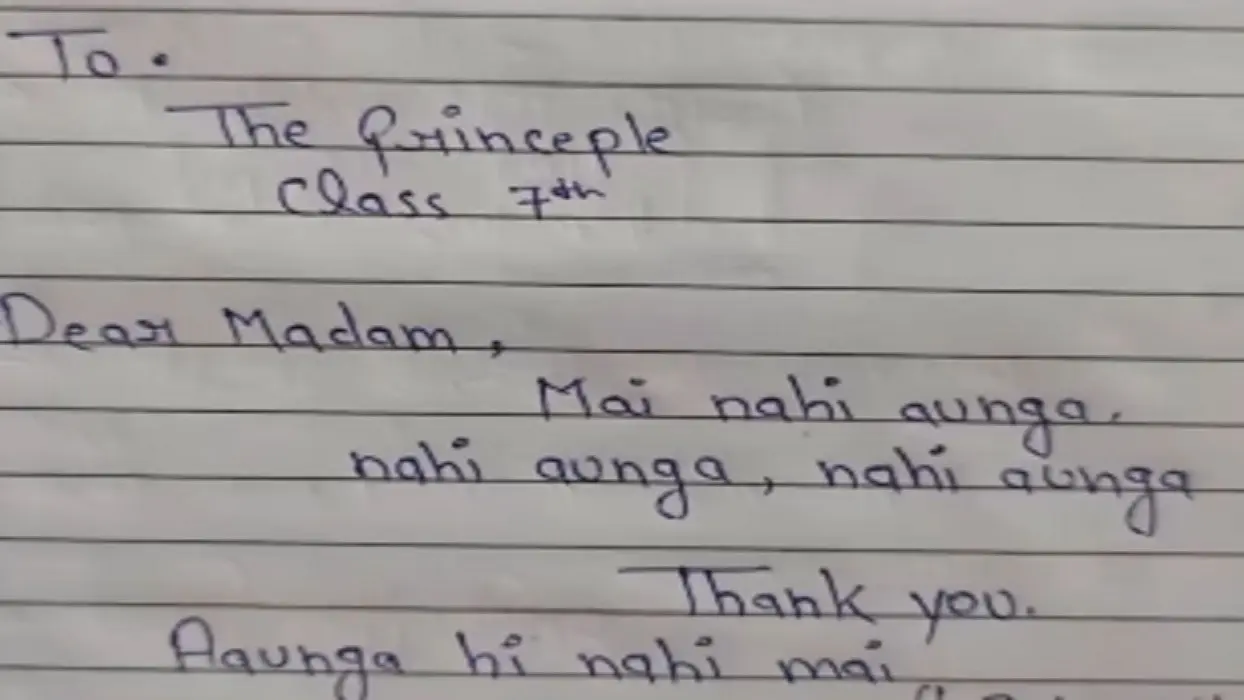 To.
The Princeple
Class 7th
Dear Madam,
Mai nahi aunga.
nahi aunga, nahi aunga
Thank you.
Aaunga hi nahi mai